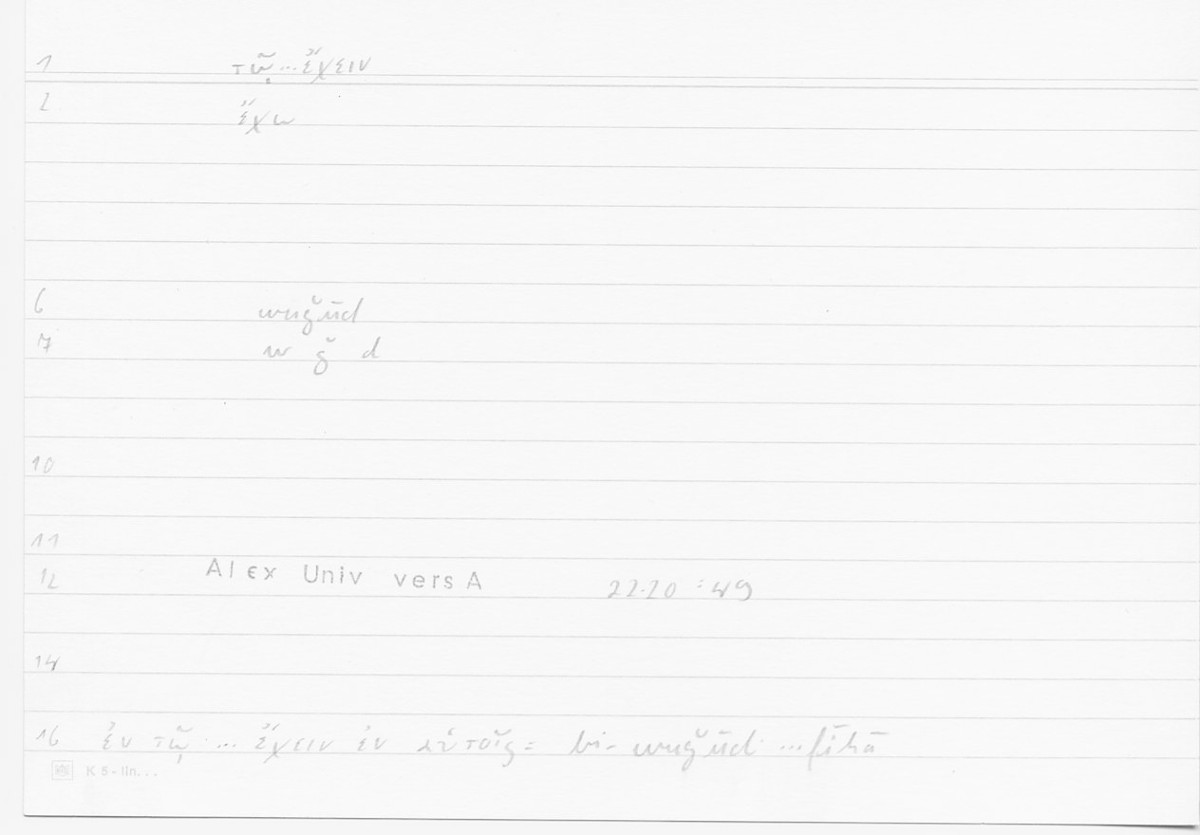 1 τῷ...ἔχειν
2 ἔχω
6 wuǧūd
7 w ǧ d
10
11
12 Alex Univ vers A 22.20 :49
14
16 ἐν τῷ ... ἔχειν ἐν αὐτοῖς = bi- wuǧūd ...fīhā